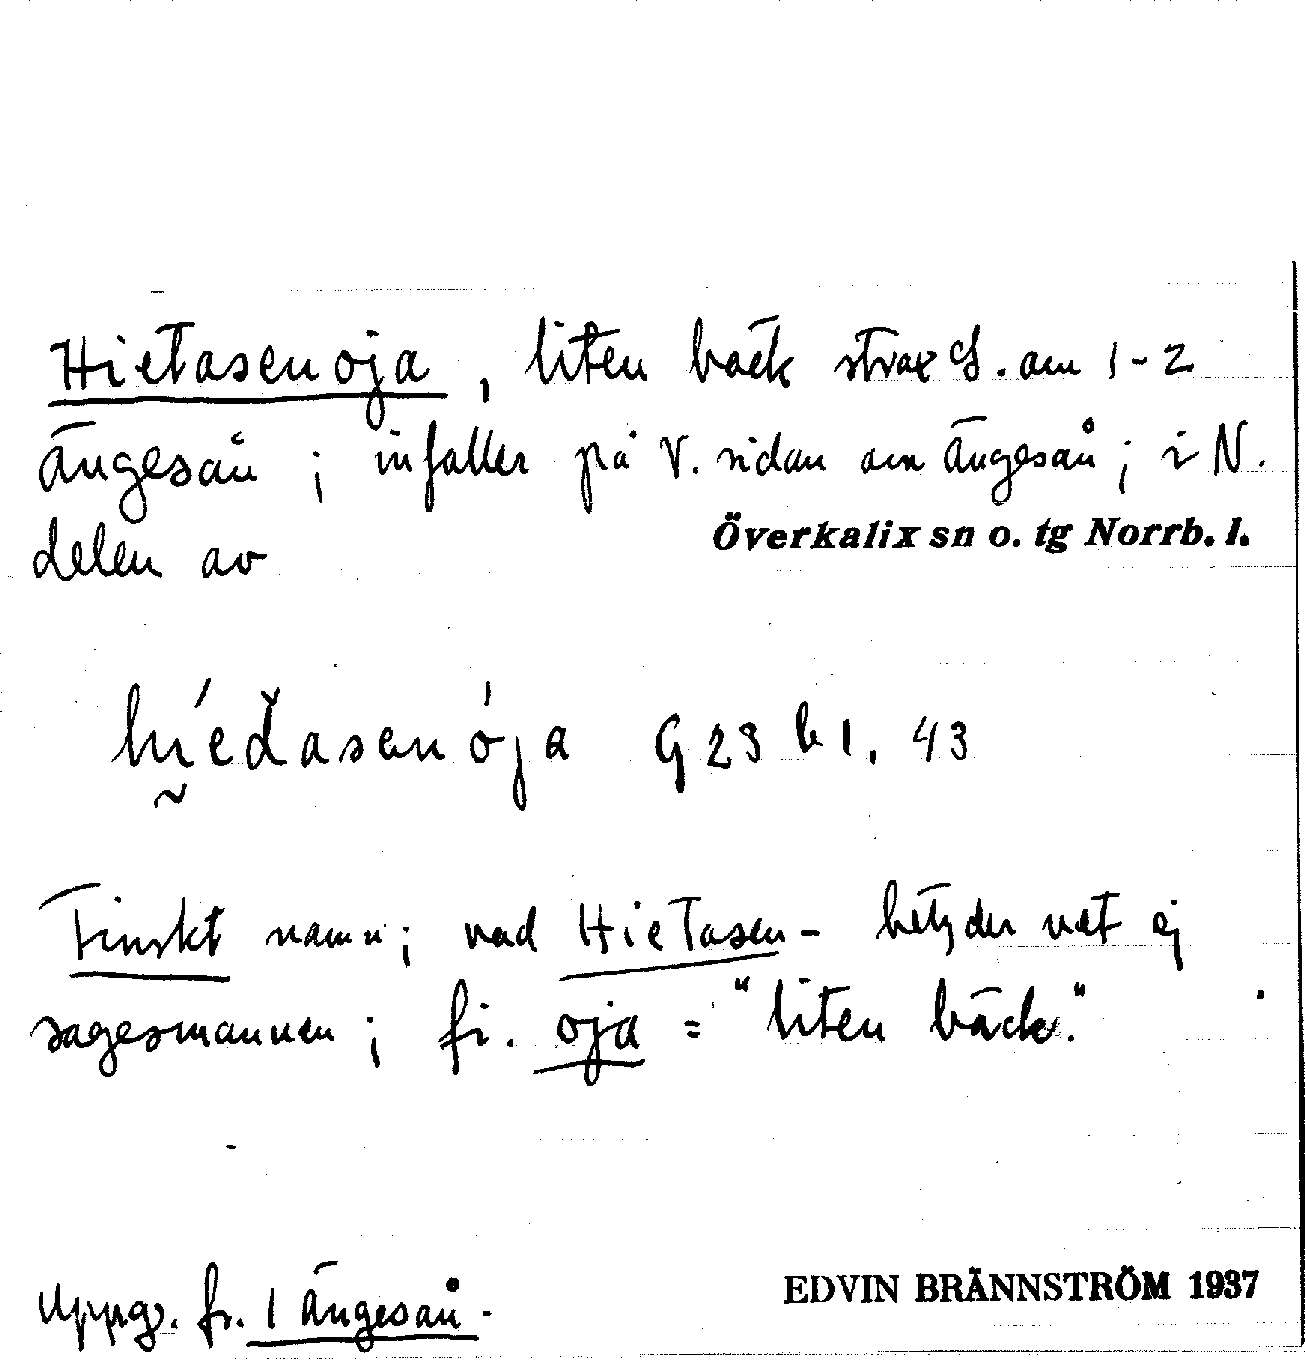 Hietasenoja, liten bäck strax S. om 1-2
Ängesån; infaller på V. sidan om Ängesån; i N.
delen av Överkalix sn o. tg Norrb. l.
híeďasenója G 23 b 1. 43
Finskt namn; vad Hietasen- betyder vet ej
sagesmannen; fi. oja = "liten bäck."
Uppg. fr. 1 Ängesån.
EDVIN BRÄNNSTRÖM 1937